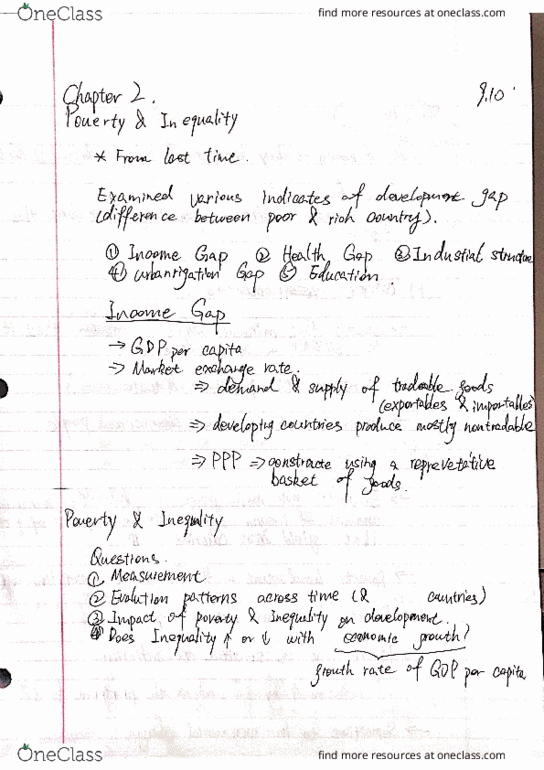 OneClass
find more resources at oneclass.com
Chapter 2.
9.10
Poverty & Inequality
* From last time.
Examined various indicates of development gap
(difference between poor & rich country).
① Income Gap ② Health Gap ③ Industial structure
④ urbanrigation Gap ⑤ Education.
Income Gap
→ GDP per capita
→ Market exchange rate.
⇒ demand & supply of tradeable goods
(exportables & importables)
⇒ developing countries produce mostly nontradable
⇒ PPP ⇒ constracte using a repretetitive
basket of goods.
Poverty & Inequality
Questions.
① Measurement
② Evolution patterns across time (& countries)
③ Impact of poverty & Inequality on development.
④ Does Inequality ↑ or ↓ with economic growth?
growth rate of GDP per capita
OneClass
find more resources at oneclass.com